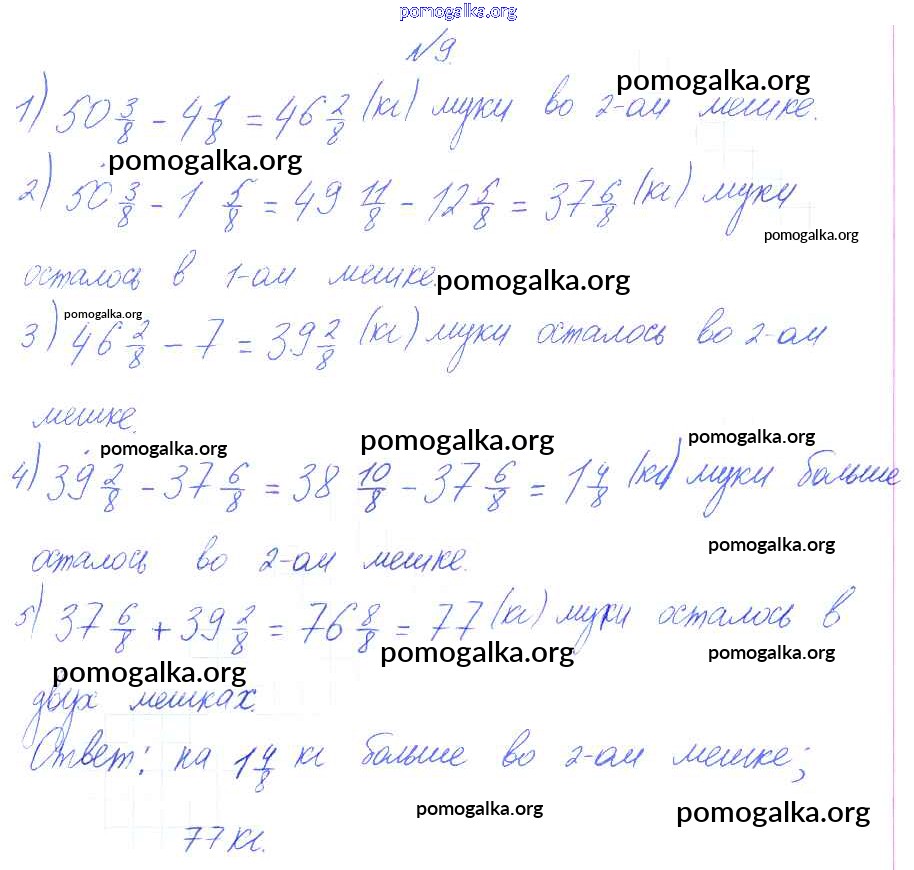 pomogalka.org
№9.
pomogalka.org
1) 50 3/8 - 4 1/8 = 46 2/8 (кг) муки во 2-ом мешке.
pomogalka.org
2) 50 3/8 - 1 5/8 = 49 11/8 - 12 5/8 = 37 6/8 (кг) муки
pomogalka.org
осталось в 1-ом мешке.
pomogalka.org
pomogalka.org
3) 46 2/8 - 7 = 39 2/8 (кг) муки осталось во 2-ом
мешке.
pomogalka.org
pomogalka.org
pomogalka.org
4) 39 2/8 - 37 6/8 = 38 10/8 - 37 6/8 = 1 4/8 (кг) муки больше
pomogalka.org
осталось во 2-ом мешке.
5) 37 6/8 + 39 2/8 = 76 8/8 = 77 (кг) муки осталось в
pomogalka.org
pomogalka.org
pomogalka.org
двух мешках.
Ответ: на 1 4/8 кг больше во 2-ом мешке;
pomogalka.org
pomogalka.org
77 кг.